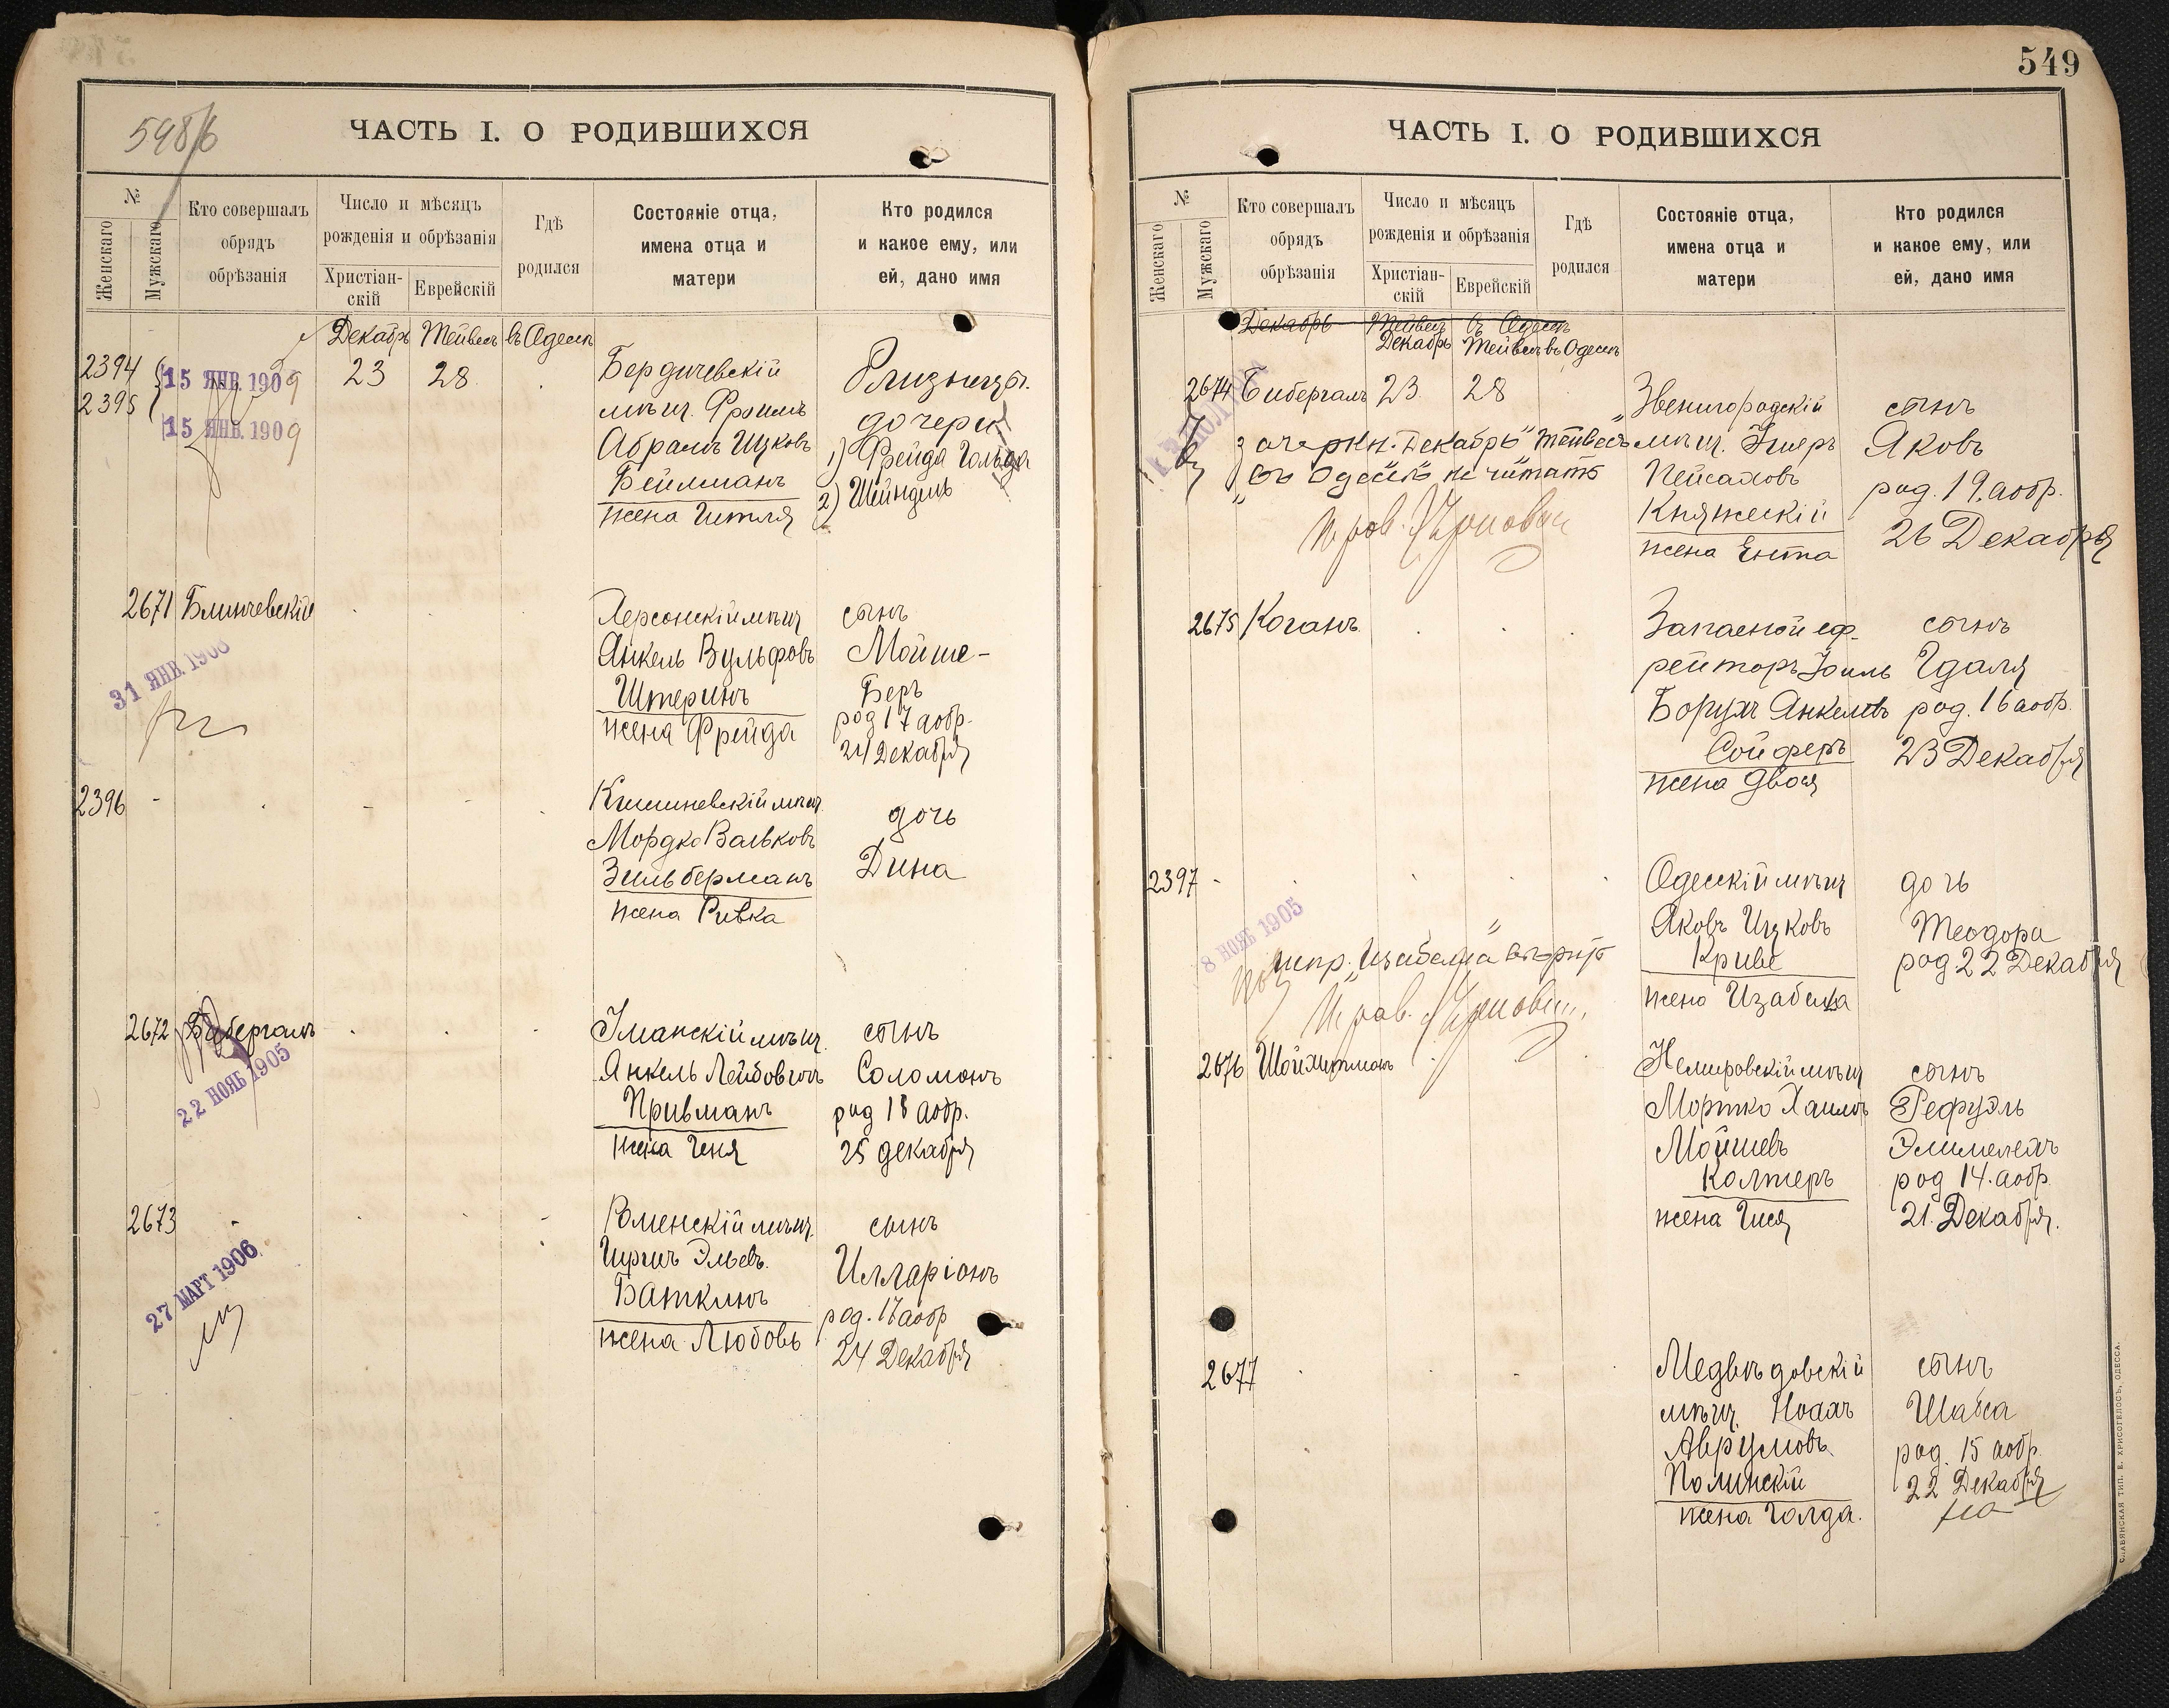 598/6
ЧАСТЬ I. О РОДИВШИХСЯ
№
Женскаго
Мужскаго
Кто совершалъ
обрядъ
обрѣзанія
Число и мѣсяцъ
рожденія и обрѣзанія
Христіан-
скій
Еврейскій
Гдѣ
родился
Состояніе отца,
имена отца и
матери
Кто родился
и какое ему, или
ей, дано имя
Декабрь Тейвесъ въ Одессѣ
2394
2395
15 ЯНВ. 1909
15 ЯНВ. 1909
23 28
Бердичевскій
мѣщ. Фроимъ
Абрамъ Ицковъ
Бейлманъ
жена Гитля
Близнецы
дочери
1) Фрейда Гольда
2) Шейндель
2671 Блинчевскій
31 ЯНВ. 1906
Херсонскій мѣщ
Янкель Вульфовъ
Штеринъ
жена Фрейда
сынъ
Мойше-
Беръ
род 17 аобр.
24 Декабря
2396
Кишиневскій мѣщ.
Мордко Вольковъ
Зильберманъ
жена Ривка
дочь
Дина
2672 Бибергалъ
22 НОЯБ 1905
Уманскій мѣщ.
Янкель Лейбовичъ
Привманъ
жена Геня
сынъ
Соломонъ
род 18 аобр.
25 декабря
2673
27 МАРТ 1906
Роменскій мѣщ.
Гиршъ Эльевъ.
Баткинъ
жена Любовь
сынъ
Илларіонъ
род. 17 аобр
24 Декабря
549
ЧАСТЬ I. О РОДИВШИХСЯ
№
Женскаго
Мужскаго
Кто совершалъ
обрядъ
обрѣзанія
Число и мѣсяцъ
рожденія и обрѣзанія
Христіан-
скій
Еврейскій
Гдѣ
родился
Состояніе отца,
имена отца и
матери
Кто родился
и какое ему, или
ей, дано имя
Декабрь Тейвесъ въ Одессѣ
Декабрь Тейвесъ въ Одессѣ
2674 Бибергалъ 23 28
зачеркн. „Декабрь" Тейвесъ
„въ Одессѣ" не читать
Звенигородскій
мѣщ. Умеръ
Пейсаховъ
Княжескій
жена Ента
сынъ
Яковъ
род. 19. аобр.
26 Декабря
2675 Коганъ
Запасной еф-
рейторъ Іоиль
Борухъ Янкелевъ
Сойферъ
жена Двося
сынъ
Гдаля
род. 16 аобр.
23 Декабря
2397
8 НОЯБ 1905
испр. „Изабелла" вѣрно
Одесскій мѣщ
Яковъ Ицковъ
Криве
жена Изабелла
дочь
Теодора
род 22 Декабря
2676 Шойхитманъ
Немировскій мѣщ
Мортко Хаимъ
Мойшевъ
Колтеръ
жена Гися
сынъ
Рефуэль
Элимелехъ
род 14. аобр.
21. Декабря.
2677
Медвѣдовскій
мѣщ. Ноахъ
Аврумовъ
Полинскій
жена Голда.
сынъ
Шабса
род. 15 аобр.
22 Декабря
СЛАВЯНСКАЯ ТИП. Е. ХРИСОГЕЛОСЪ, ОДЕССА.